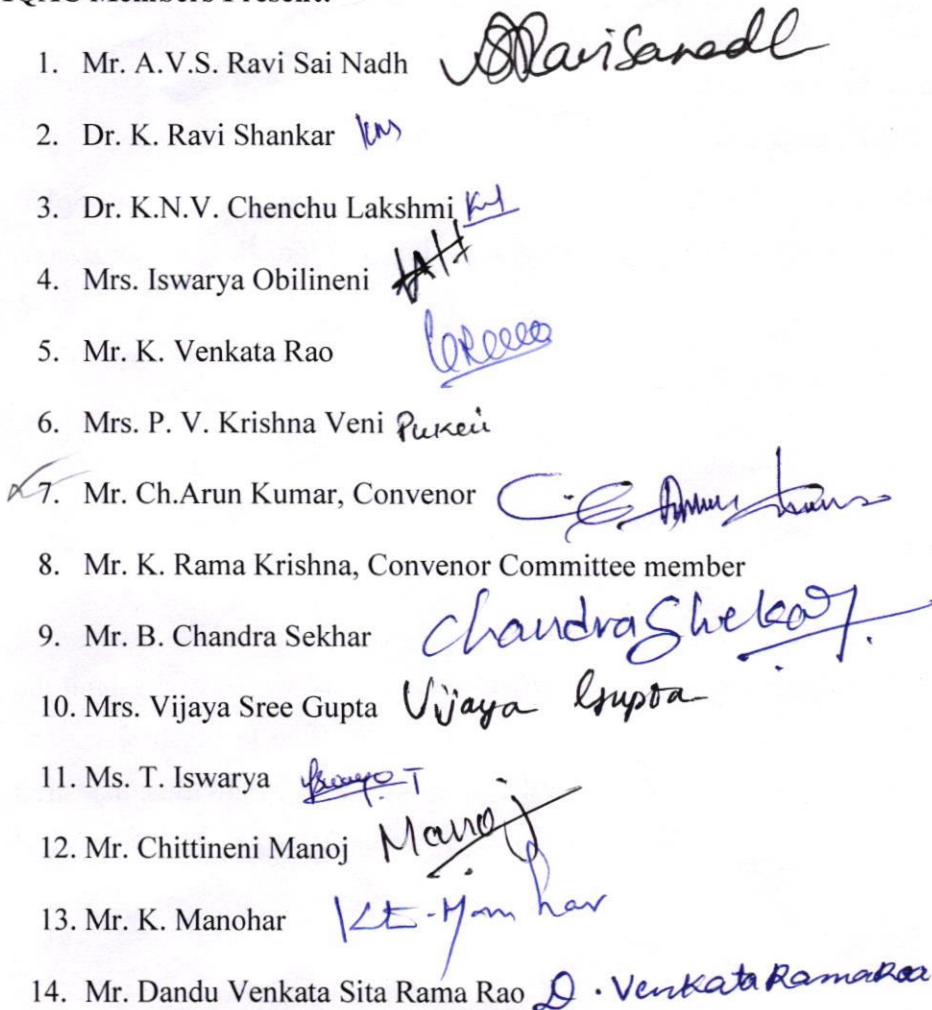 IQAC Members Present:
1. Mr. A.V.S. Ravi Sai Nadh
2. Dr. K. Ravi Shankar
3. Dr. K.N.V. Chenchu Lakshmi
4. Mrs. Iswarya Obilineni
5. Mr. K. Venkata Rao
6. Mrs. P. V. Krishna Veni
7. Mr. Ch.Arun Kumar, Convenor
8. Mr. K. Rama Krishna, Convenor Committee member
9. Mr. B. Chandra Sekhar Chandra Shekar
10. Mrs. Vijaya Sree Gupta Vijaya Gupta
11. Ms. T. Iswarya
12. Mr. Chittineni Manoj Manoj
13. Mr. K. Manohar
14. Mr. Dandu Venkata Sita Rama Rao D. Venkata Rama Rao